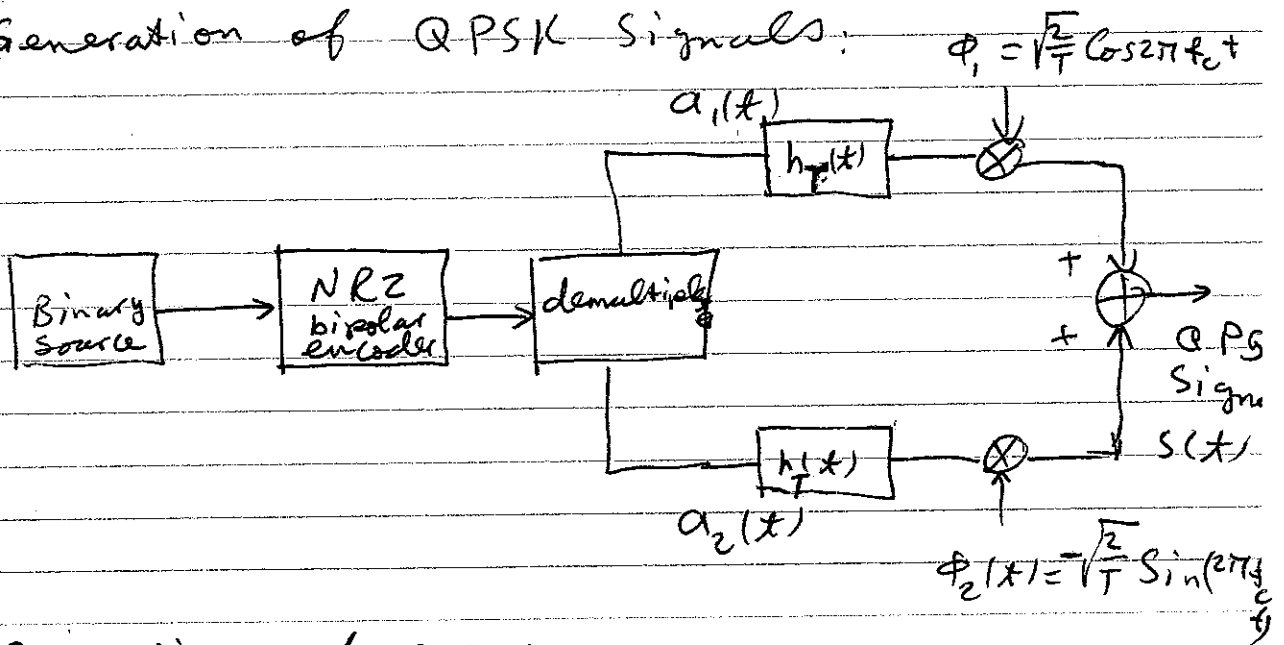 Generation of QPSK Signals:
Φ₁ = √(2/T) Cos2πf_c t
a₁(t)
h_T(t)
Binary
Source
NRZ
bipolar
encoder
demultiplex
+
+
QPS
Sign
S(t)
h_T(t)
a₂(t)
Φ₂(t) = -√(2/T) Sin(2πf_c t)